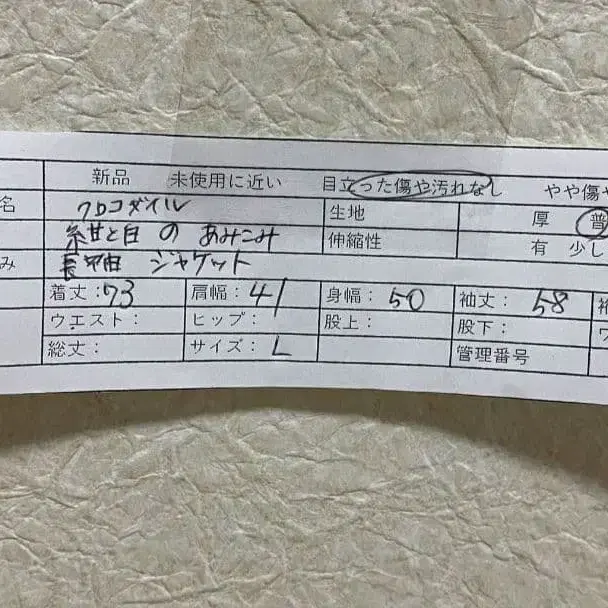 新品 未使用に近い 目立った傷や汚れなし やや傷や
名 クロコダイル 生地 厚 普
紺と白 の あみこみ 伸縮性 有 少し
み 長袖 ジャケット
着丈：73 肩幅：41 身幅：50 袖丈：58 裄
ウエスト： ヒップ： 股上： 股下： ワ
総丈： サイズ：L 管理番号